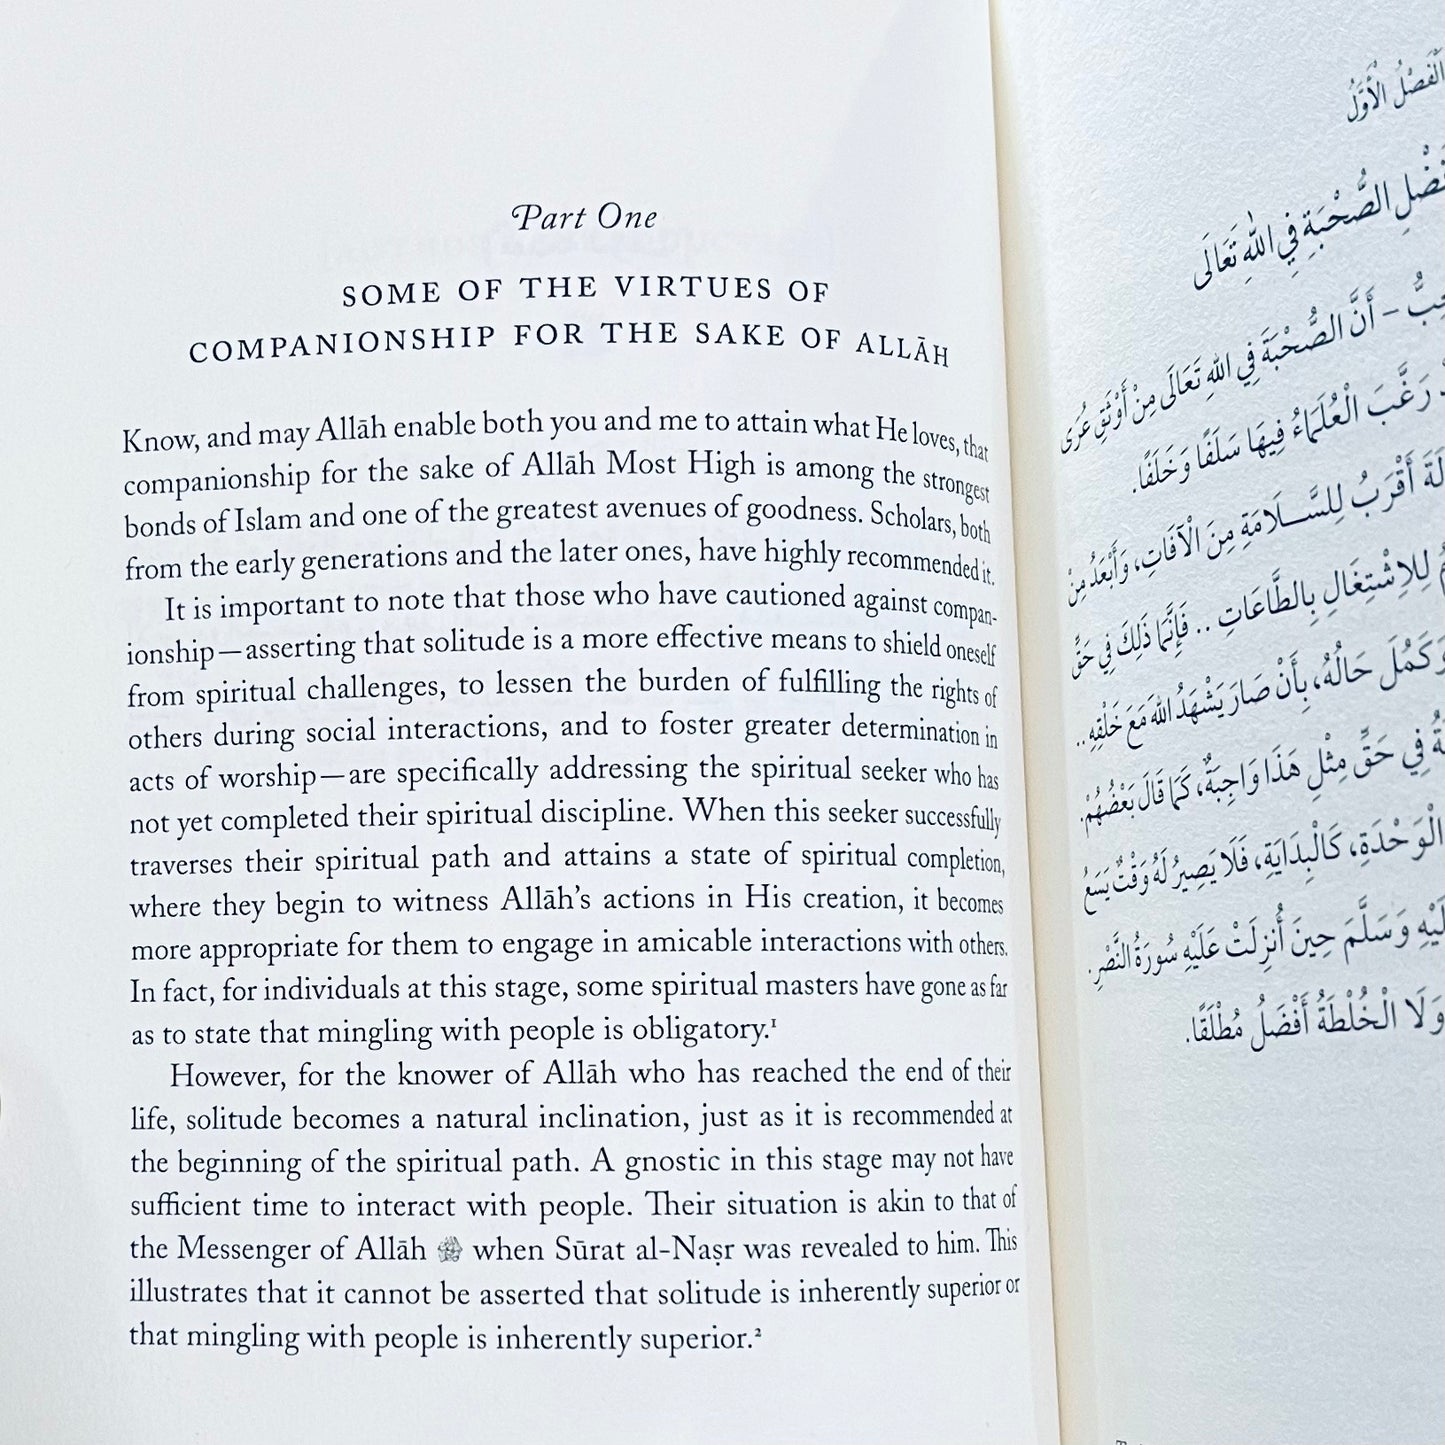 Part One
SOME OF THE VIRTUES OF
COMPANIONSHIP FOR THE SAKE OF ALLĀH
Know, and may Allāh enable both you and me to attain what He loves, that
companionship for the sake of Allāh Most High is among the strongest
bonds of Islam and one of the greatest avenues of goodness. Scholars, both
from the early generations and the later ones, have highly recommended it.
It is important to note that those who have cautioned against compan-
ionship—asserting that solitude is a more effective means to shield oneself
from spiritual challenges, to lessen the burden of fulfilling the rights of
others during social interactions, and to foster greater determination in
acts of worship—are specifically addressing the spiritual seeker who has
not yet completed their spiritual discipline. When this seeker successfully
traverses their spiritual path and attains a state of spiritual completion,
where they begin to witness Allāh’s actions in His creation, it becomes
more appropriate for them to engage in amicable interactions with others.
In fact, for individuals at this stage, some spiritual masters have gone as far
as to state that mingling with people is obligatory.¹
However, for the knower of Allāh who has reached the end of their
life, solitude becomes a natural inclination, just as it is recommended at
the beginning of the spiritual path. A gnostic in this stage may not have
sufficient time to interact with people. Their situation is akin to that of
the Messenger of Allāh ﷺ when Sūrat al-Naṣr was revealed to him. This
illustrates that it cannot be asserted that solitude is inherently superior or
that mingling with people is inherently superior.²
الْفَصْلُ الْأَوَّلُ
فَضْلِ الصُّحْبَةِ فِي اللهِ تَعَالَى
– أَنَّ الصُّحْبَةَ فِي اللهِ تَعَالَى مِنْ أَوْثَقِ عُرَى
رَغَّبَ الْعُلَمَاءُ فِيهَا سَلَفًا وَخَلَفًا.
أَقْرَبُ لِلسَّلَامَةِ مِنَ الْآفَاتِ، وَأَبْعَدُ مِنْ
لِلِاشْتِغَالِ بِالطَّاعَاتِ .. فَإِنَّمَا ذَلِكَ فِي حَقِّ
وَكَمُلَ حَالُهُ، بِأَنْ صَارَ يَشْهَدُ اللهَ مَعَ خَلْقِهِ ..
فِي حَقِّ مِثْلِ هَذَا وَاجِبَةٌ، كَمَا قَالَ بَعْضُهُمْ.
الْوَحْدَةِ، كَالْبِدَايَةِ، فَلَا يَصِيرُ لَهُ وَقْتٌ يَسَعُ
وَسَلَّمَ حِينَ أُنزِلَتْ عَلَيْهِ سُورَةُ النَّصْرِ.
وَلَا الْخُلْطَةُ أَفْضَلُ مُطْلَقًا.